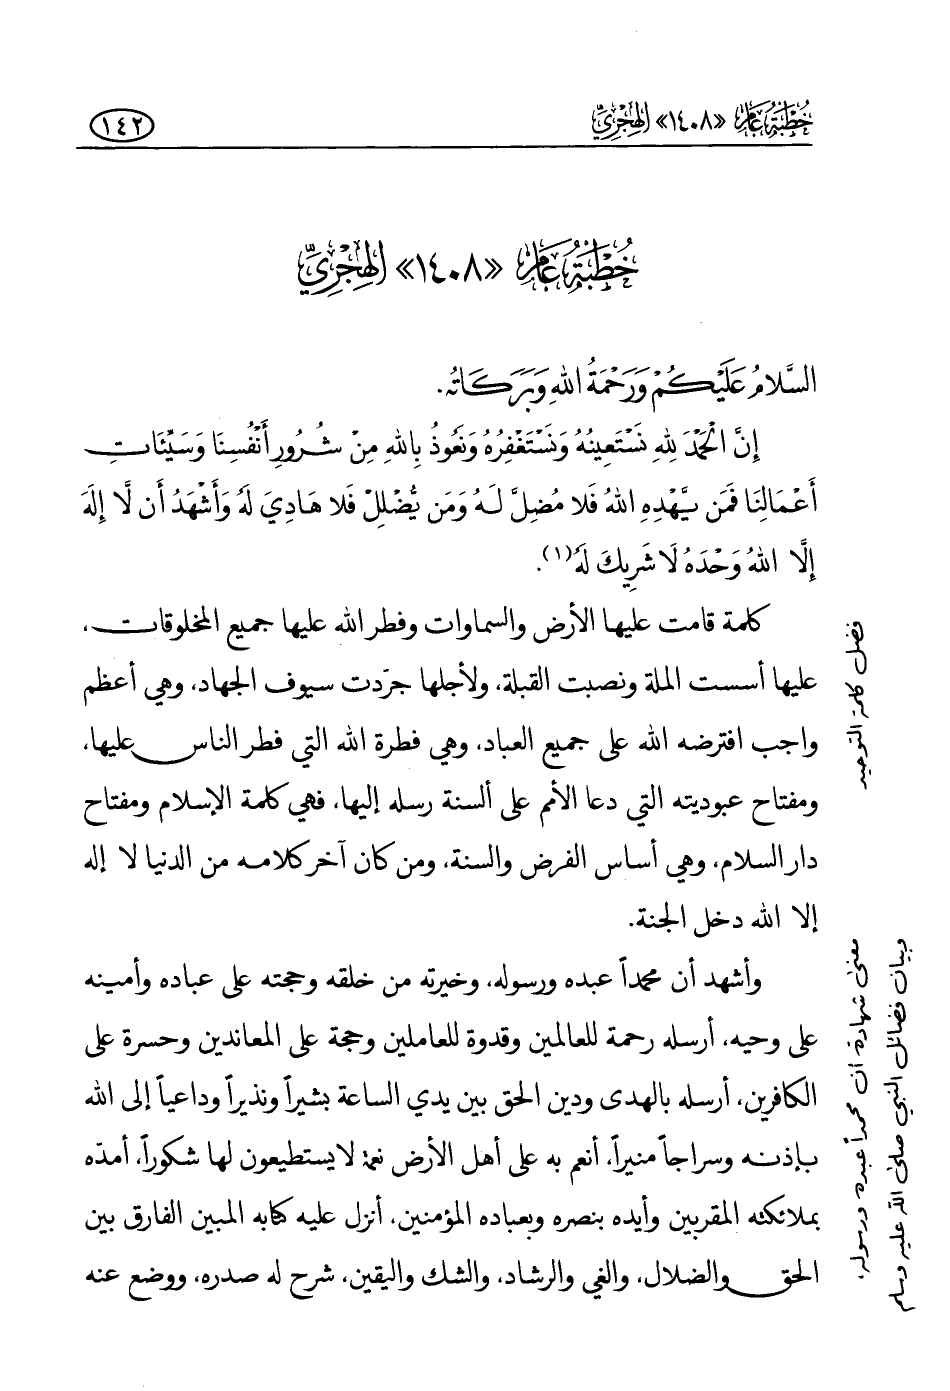 خُطْبَةُ عَامِ «١٤٠٨» الهِجْرِيِّ
١٤٢
خُطْبَةُ عَامِ «١٤٠٨» الهِجْرِيِّ
السَّلَامُ عَلَيْكُمْ وَرَحْمَةُ اللهِ وَبَرَكَاتُهُ.
إِنَّ الْحَمْدَ لِلهِ نَسْتَعِينُهُ وَنَسْتَغْفِرُهُ وَنَعُوذُ بِاللهِ مِنْ شُرُورِ أَنْفُسِنَا وَسَيِّئَاتِ
أَعْمَالِنَا فَمَن يَهْدِهِ اللهُ فَلَا مُضِلَّ لَهُ وَمَن يُضْلِلْ فَلَا هَادِيَ لَهُ وَأَشْهَدُ أَن لَّا إِلَهَ
إِلَّا اللهُ وَحْدَهُ لَا شَرِيكَ لَهُ(١).
كلمة قامت عليها الأرض والسماوات وفطر الله عليها جميع المخلوقات،
عليها أسست الملة ونصبت القبلة، ولأجلها جرّدت سيوف الجهاد، وهي أعظم
واجب افترضه الله على جميع العباد، وهي فطرة الله التي فطر الناس عليها،
ومفتاح عبوديته التي دعا الأمم على ألسنة رسله إليها، فهي كلمة الإسلام ومفتاح
دار السلام، وهي أساس الفرض والسنة، ومن كان آخر كلامه من الدنيا لا إله
إلا الله دخل الجنة.
وأشهد أن محمداً عبده ورسوله، وخيرته من خلقه وحجته على عباده وأمينه
على وحيه، أرسله رحمة للعالمين وقدوة للعاملين وحجة على المعاندين وحسرة على
الكافرين، أرسله بالهدى ودين الحق بين يدي الساعة بشيراً ونذيراً وداعياً إلى الله
بإذنه وسراجاً منيراً، أنعم به على أهل الأرض نعمة لا يستطيعون لها شكوراً، أمدّه
بملائكته المقربين وأيده بنصره وبعباده المؤمنين، أنزل عليه كتابه المبين الفارق بين
الحق والضلال، والغي والرشاد، والشك واليقين، شرح له صدره، ووضع عنه
فضل كلمة التوحيد
معنى شهادة أن محمداً عبده ورسوله،
وبيان فضائل النبي صلى الله عليه وسلم